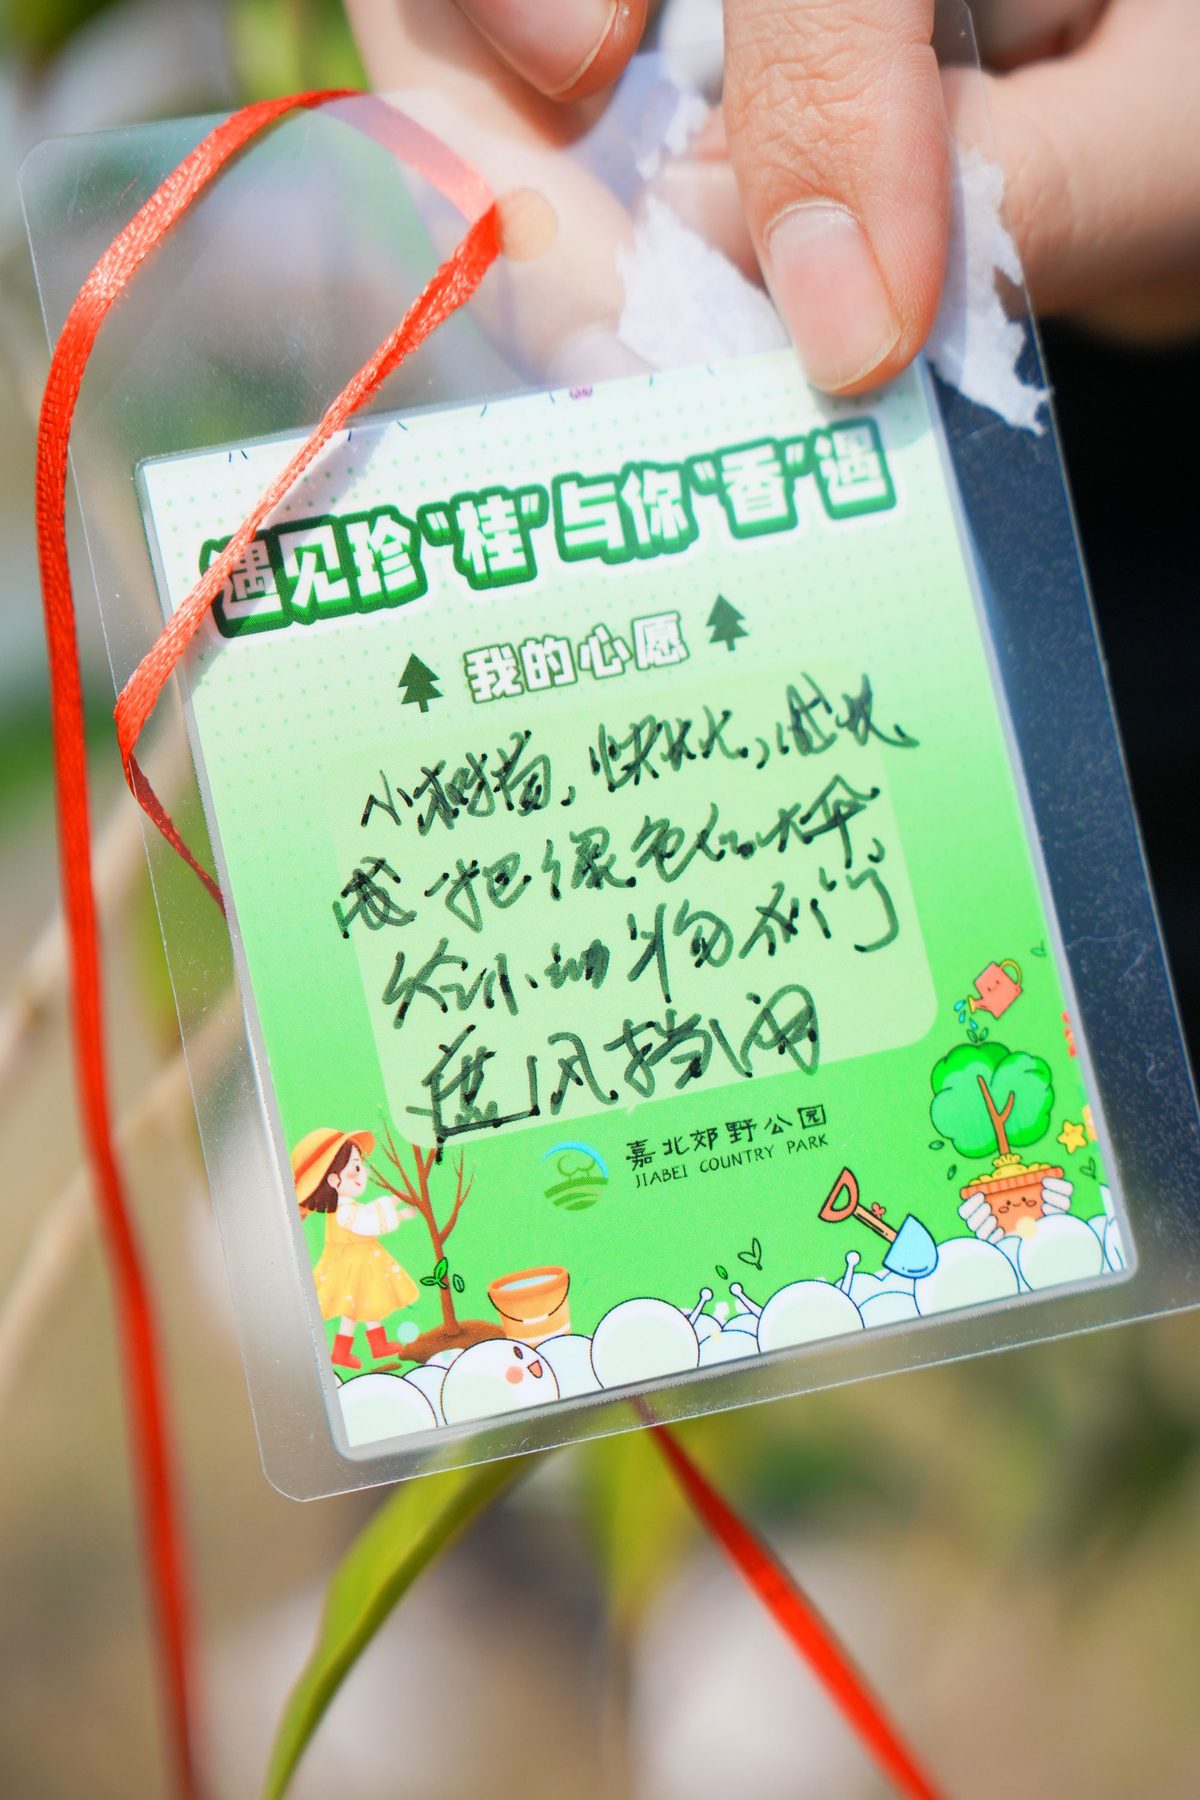 遇见珍"桂"与你"香"遇
我的心愿
小树苗,快长大,长
成一把绿色的大伞,
给小动物们
遮风挡雨
嘉北郊野公园
JIABEI COUNTRY PARK